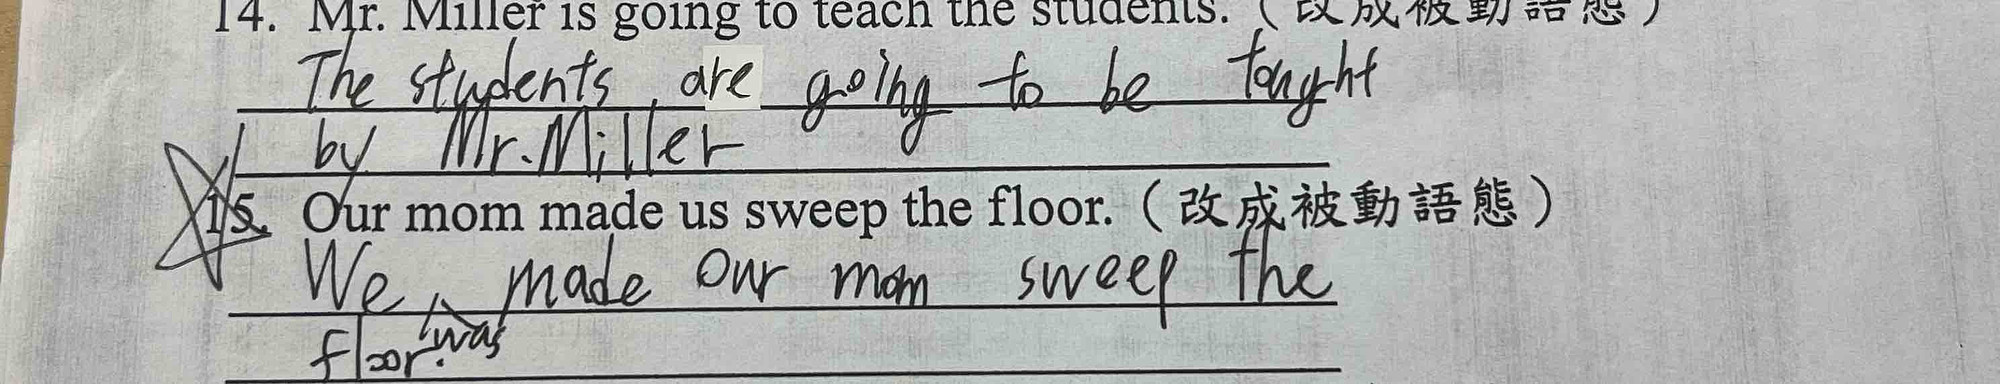 14. Mr. Miller is going to teach the students. (改成被動語態)
The students are going to be taught
by Mr. Miller
15. Our mom made us sweep the floor. (改成被動語態)
We made our mom sweep the
floor. was